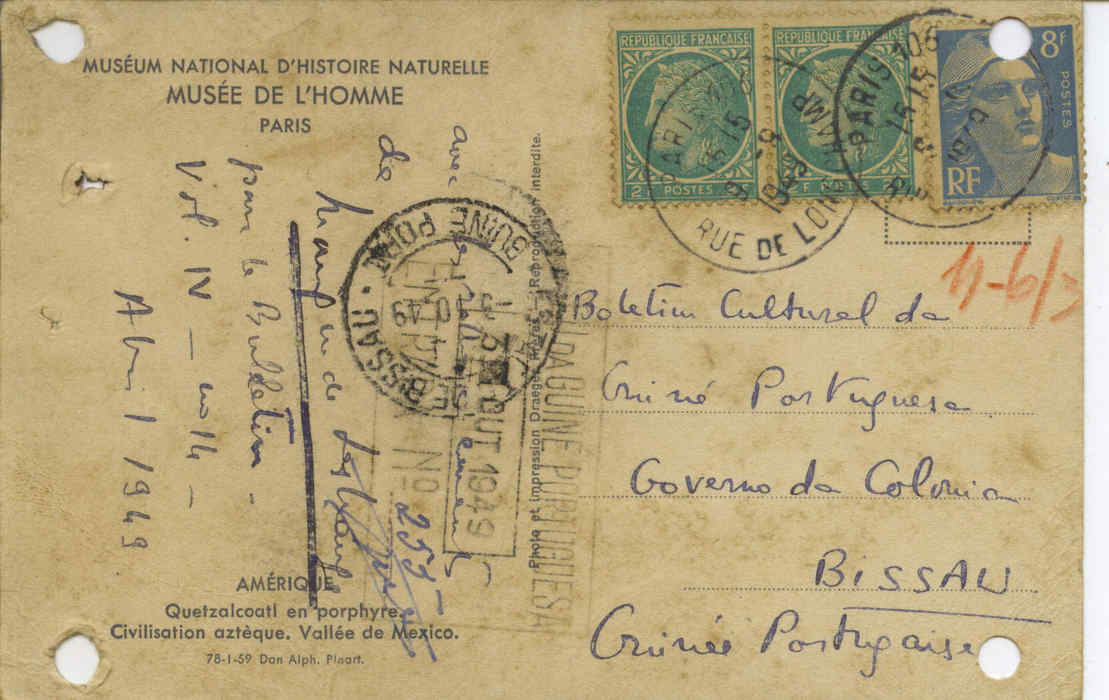 MUSÉUM NATIONAL D'HISTOIRE NATURELLE
MUSÉE DE L'HOMME
PARIS
avec
de
pour le Bulletin -
Vol. IV - no 14 -
Abril 1949
AMÉRIQUE
Quetzalcoatl en porphyre.
Civilisation aztèque. Vallée de Mexico.
78-1-59 Don Alph. Pinart.
Photo et impression Draeger Reproduction interdite.
RÉPUBLIQUE FRANÇAISE
2F POSTES
RÉPUBLIQUE FRANÇAISE
F POSTES
8F
POSTES
RF
PARIS 106
15 15
9 - 8
1949
RUE DE LONGCHAMP
PARIS 106
15 15
1949
GUINÉ PORT
BISSAU
OUT 1949
Nº 255
DA GUINÉ PORTUGUESA
11-6/
Boletim Cultural da
Guiné Portuguesa
Governo da Colonia
BISSAU
Guinée Portugaise